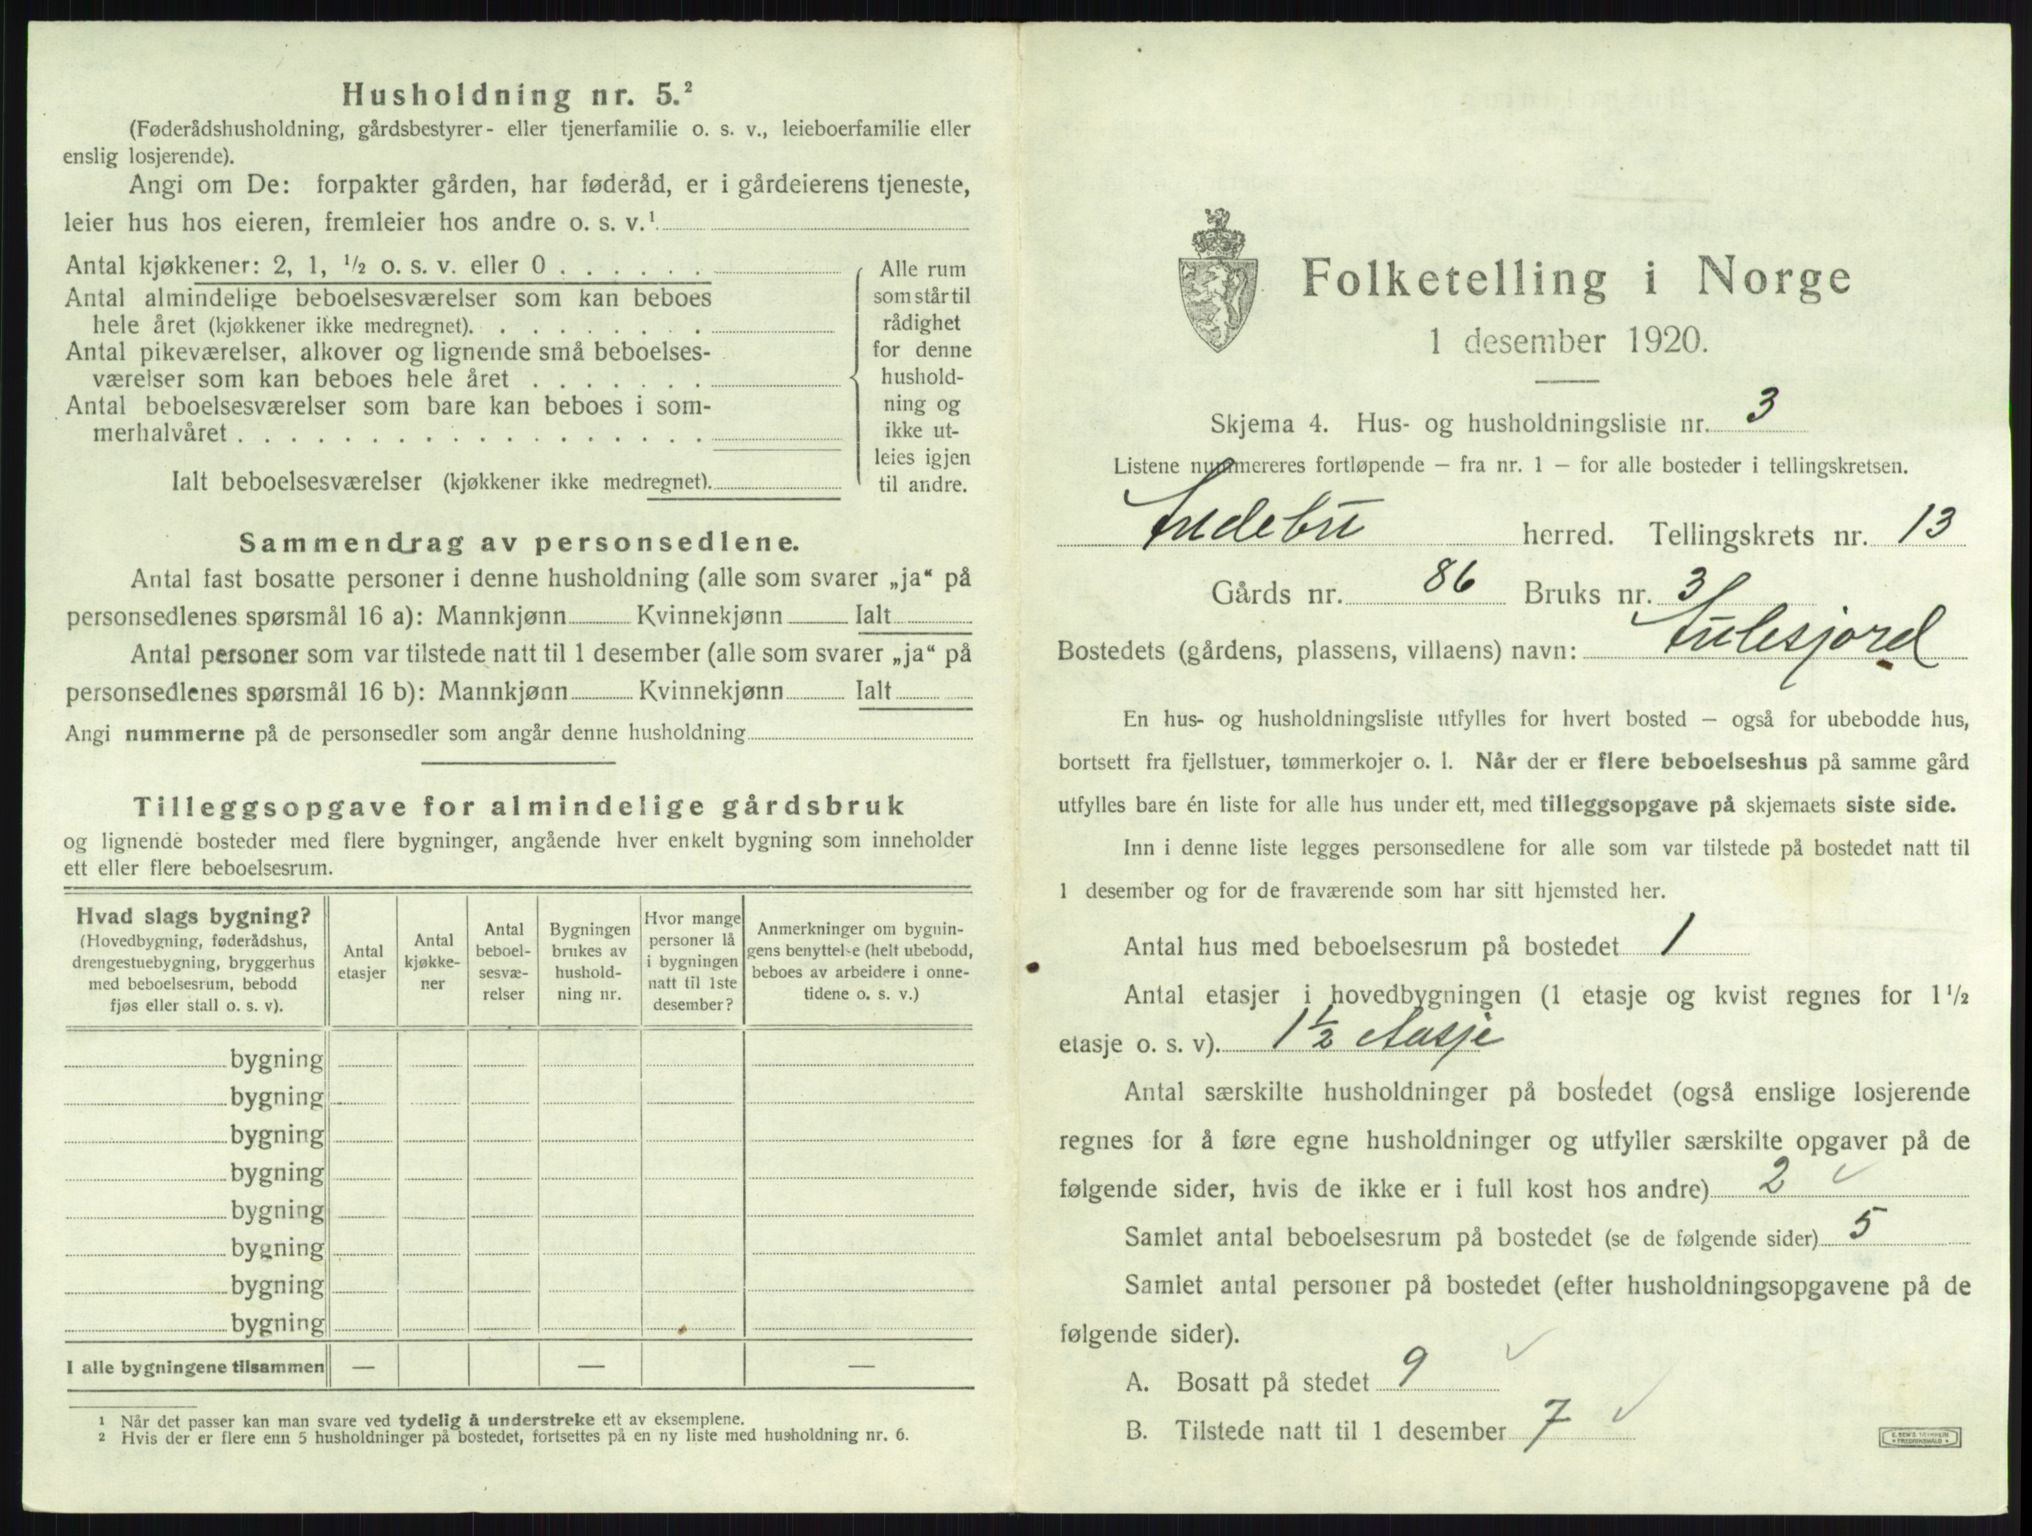 Husholdning nr. 5.²
(Føderådshusholdning, gårdsbestyrer- eller tjenerfamilie o. s. v., leieboerfamilie eller
enslig losjerende).
Angi om De: forpakter gården, har føderåd, er i gårdeierens tjeneste,
leier hus hos eieren, fremleier hos andre o. s. v.¹
Antal kjøkkener: 2, 1, ½ o. s. v. eller 0 . . . . . .
Antal almindelige beboelsesværelser som kan beboes
hele året (kjøkkener ikke medregnet). . . . . . . . .
Antal pikeværelser, alkover og lignende små beboelses-
værelser som kan beboes hele året . . . . . . .
Antal beboelsesværelser som bare kan beboes i som-
merhalvåret . . . . . . . . . . . . . . . . . .
Ialt beboelsesværelser (kjøkkener ikke medregnet).
Alle rum
som står til
rådighet
for denne
hushold-
ning og
ikke ut-
leies igjen
til andre.
Sammendrag av personsedlene.
Antal fast bosatte personer i denne husholdning (alle som svarer „ja“ på
personsedlenes spørsmål 16 a): Mannkjønn Kvinnekjønn Ialt
Antal personer som var tilstede natt til 1 desember (alle som svarer „ja“ på
personsedlenes spørsmål 16 b): Mannkjønn Kvinnekjønn Ialt
Angi nummerne på de personsedler som angår denne husholdning
Tilleggsopgave for almindelige gårdsbruk
og lignende bosteder med flere bygninger, angående hver enkelt bygning som inneholder
ett eller flere beboelsesrum.
Hvad slags bygning?
(Hovedbygning, føderådshus,
drengestuebygning, bryggerhus
med beboelsesrum, bebodd
fjøs eller stall o. s. v).
Antal
etasjer
Antal
kjøkke-
ner
Antal
beboel-
sesvæ-
relser
Bygningen
brukes av
hushold-
ning nr.
Hvor mange
personer lå
i bygningen
natt til 1ste
desember?
Anmerkninger om bygnin-
gens benyttelse (helt ubebodd,
beboes av arbeidere i onne-
tidene o. s. v.)
bygning
bygning
bygning
bygning
bygning
bygning
bygning
bygning
I alle bygningene tilsammen — — —
¹ Når det passer kan man svare ved tydelig å understreke ett av eksemplene.
² Hvis der er flere enn 5 husholdninger på bostedet, fortsettes på en ny liste med husholdning nr. 6.
Folketelling i Norge
1 desember 1920.
Skjema 4. Hus- og husholdningsliste nr. 3
Listene nummereres fortløpende — fra nr. 1 — for alle bosteder i tellingskretsen.
Andebu herred. Tellingskrets nr. 13
Gårds nr. 86 Bruks nr. 3
Bostedets (gårdens, plassens, villaens) navn:
En hus- og husholdningsliste utfylles for hvert bosted — også for ubebodde hus,
bortsett fra fjellstuer, tømmerkojer o. l. Når der er flere beboelseshus på samme gård
utfylles bare én liste for alle hus under ett, med tilleggsopgave på skjemaets siste side.
Inn i denne liste legges personsedlene for alle som var tilstede på bostedet natt til
1 desember og for de fraværende som har sitt hjemsted her.
Antal hus med beboelsesrum på bostedet 1
Antal etasjer i hovedbygningen (1 etasje og kvist regnes for 1½
etasje o. s. v). 1½ etasje
Antal særskilte husholdninger på bostedet (også enslige losjerende
regnes for å føre egne husholdninger og utfyller særskilte opgaver på de
følgende sider, hvis de ikke er i full kost hos andre) 2 ✓
Samlet antal beboelsesrum på bostedet (se de følgende sider) 5
Samlet antal personer på bostedet (efter husholdningsopgavene på de
følgende sider).
A. Bosatt på stedet 9 ✓
B. Tilstede natt til 1 desember 7 ✓